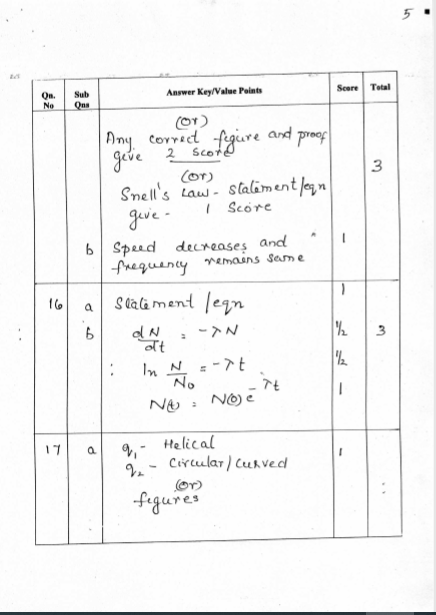 5
Qn. No Sub Qns Answer Key/Value Points Score Total
(or)
Any correct figure and proof
give 2 score
3
(or)
Snell's Law - Statement/eqn
give - 1 Score
b Speed decreases and 1
frequency remains same
16 a Statement/eqn 1
b dN/dt = -λN ½ 3
: ln N/No = -λt ½
N(t) = N(0)e^-λt 1
17 a q₁ - Helical 1
q₂ - Circular/Curved
(or)
figures